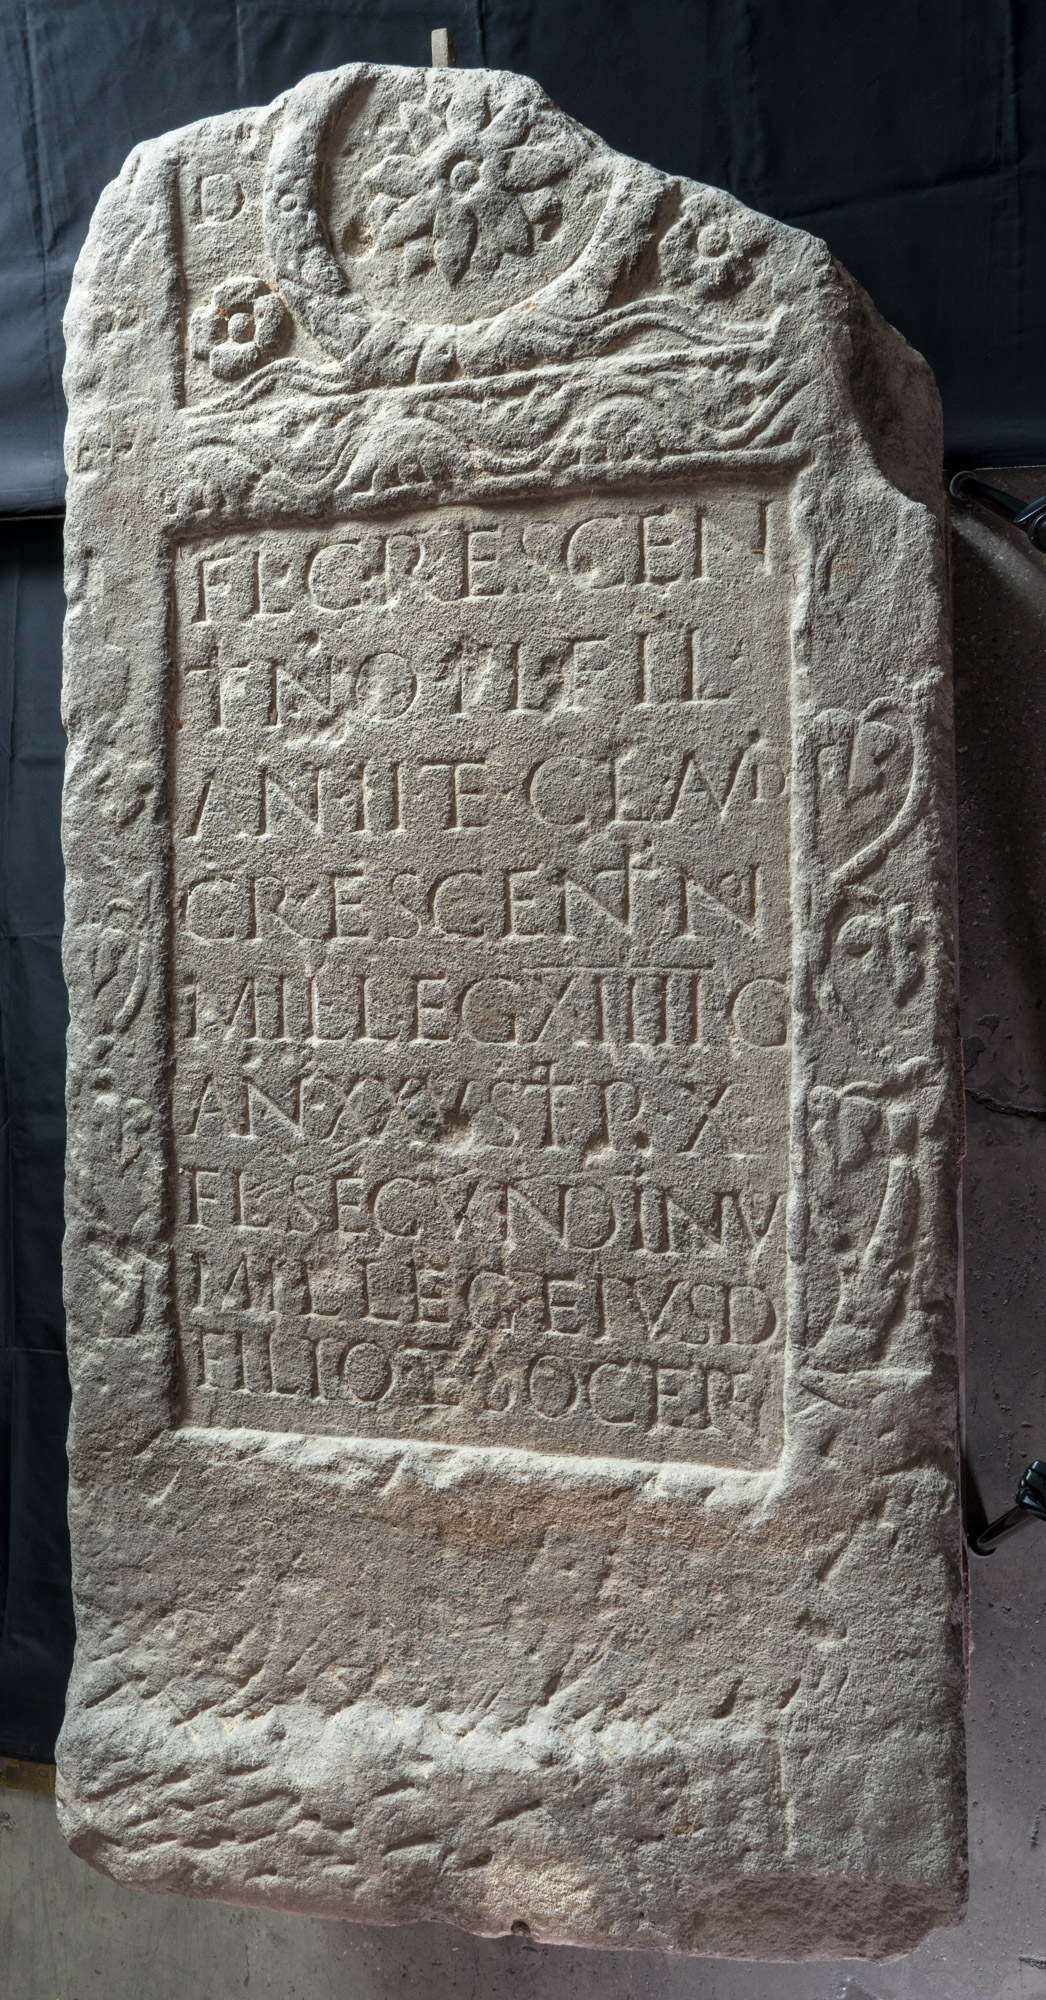 D
FL CRESCEN
TINO TI FIL
AN III ET CLAVD
CRESCENTIN
MIL LEG XIIII G
AN XXV STIP X
FL SECVNDINV
MIL LEG EIVSD
FILIO ET SOCER